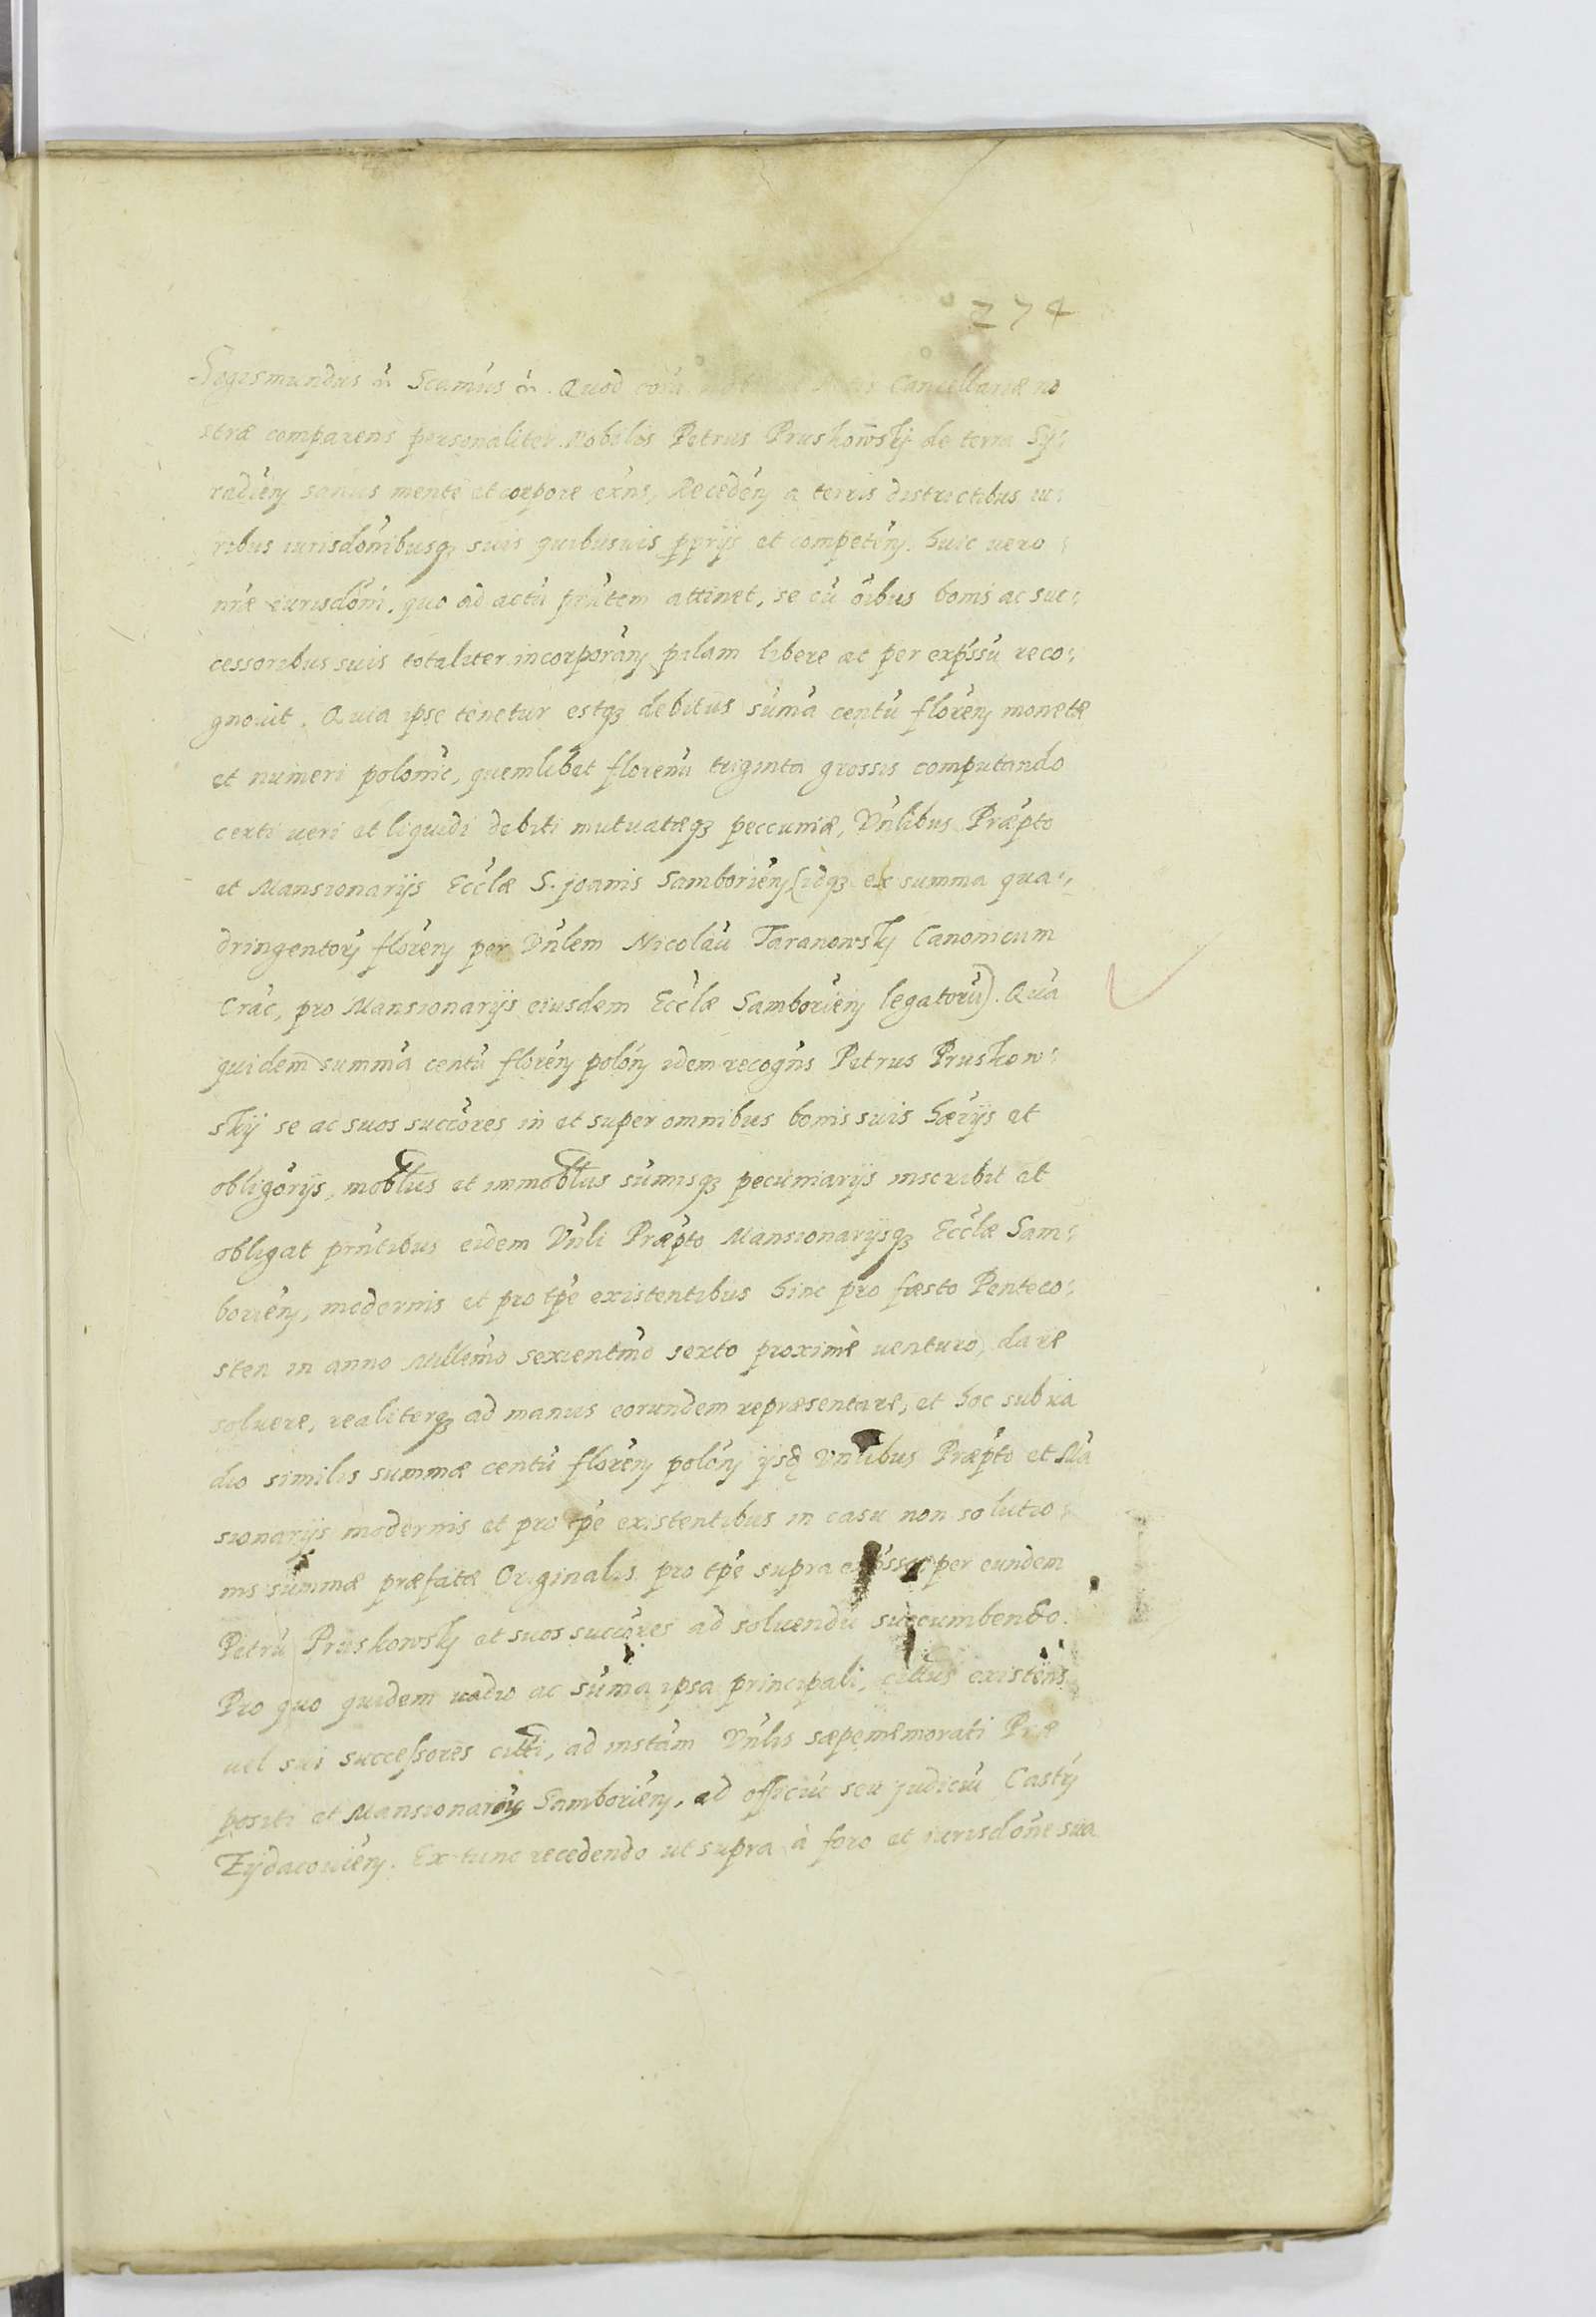 274
Sigismundus etc. Scimus etc. Quod corã Actis Cancellariæ no
stræ comparens personaliter Nobilis Petrus Pruskowskj de terra Sy:
radień sanus mente et corpore exñs, Recedeń a terris districtibus iu:
ribus iurisdõnibusqꝫ suis quibusuis pprijs et competeń. huic uero
nr̃æ iurisdõni, quo ad actũ pr̃ntem attinet, se cũ oĩbus bonis ac suc:
cessoribus suis totaliter incorporań palam libere ac per exp̃ssũ reco:
gnouit. Quia ipse tenetur estqꝫ debitus sum̃a centũ floreń monetæ
et numeri polonic̃, quemlibet florenũ triginta grossis computando
certi ueri et liquidi debiti mutuatæqꝫ peccuniæ, Vñlibus Præp̃to
et Mansionarijs Eccl̃æ S. joanis Samborień (idqꝫ ex summa qua:
dringentorũ floreń per Vñlem Nicolaũ Taranowskj Canonicum
Crac̃, pro Mansionarijs eiusdem Eccl̃æ Samborień legatorũ). Quã
quidem summã centũ floreń poloń idem recogñs Petrus Pruskow:
skij se ac suos succõres in et super omnibus bonis suis hærijs et
obligõrijs, mobl̃us et immobl̃us sum̃isqꝫ pecuniarijs inscribit et
obligat pr̃ntibus eidem Vñli Præp̃to Mansionarijsqꝫ Eccl̃æ Sam:
borień, modernis et pro tp̃e existentibus hinc pro fæsto Penteco:
sten in anno Millem̃o sexcentm̃o sexto proximè uenturo, dare
soluere, realiterqꝫ ad manus eorundem repræsentare, et hoc sub ua
dio similis summæ centũ floreń poloń ijsdẽ Vñlibus Præp̃to et Mã
sionarijs modernis et pro tp̃e existentibus in casu non solutio:
nis summæ præfatæ Originalis pro tp̃e supra per eundem
Petrũ Pruskowskj et suos succõres ad soluendũ succumbendo.
Pro quo quidem uadio ac sum̃a ipsa principali, citt̃us existens
uel sui successores citt̃i, ad instãm Vñlis sæpememorati Præ
positi et Mansionariorũ Samborień, ad officiũ seu judiciũ Castr̃
Zydacouień. Ex tunc recedendo ut supra à foro et iurisdõne sua